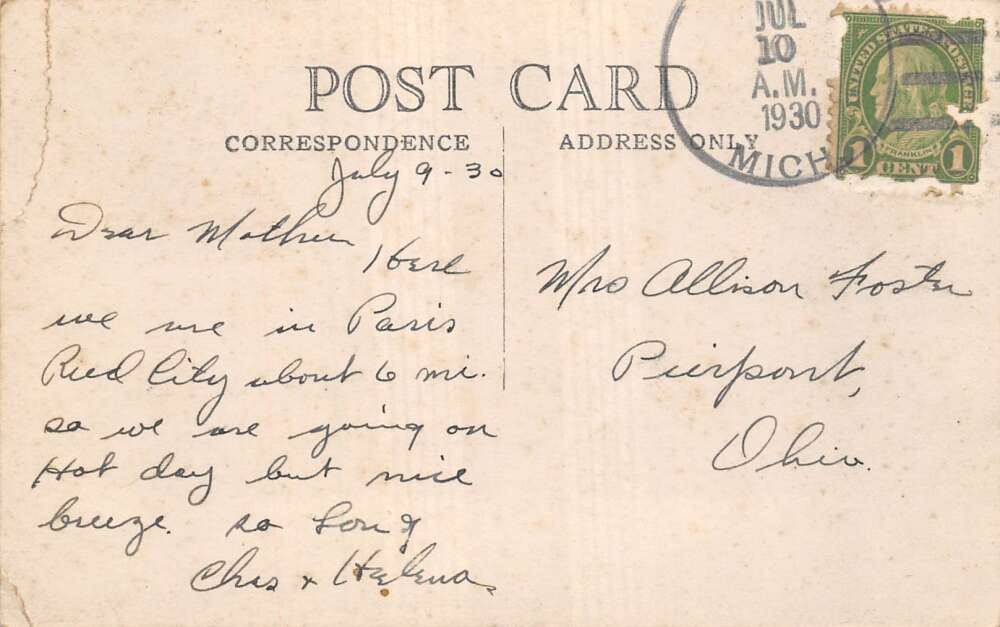 POST CARD
CORRESPONDENCE
ADDRESS ONLY
JUL
10
A.M.
1930
MICH
UNITED STATES POSTAGE
FRANKLIN
1 CENT 1
July 9-30
Dear Mother
Here
we are in Paris
Reed City about 6 mi.
so we are going on
Hot day but nice
breeze. so Long
Chas + Helena
Mrs Allison Foster
Pierpont,
Ohio.